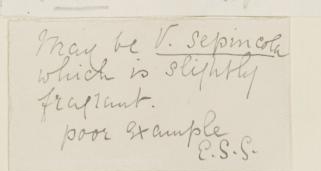 May be V. sepincola
which is slightly
fragrant.
poor example
E.S.G.